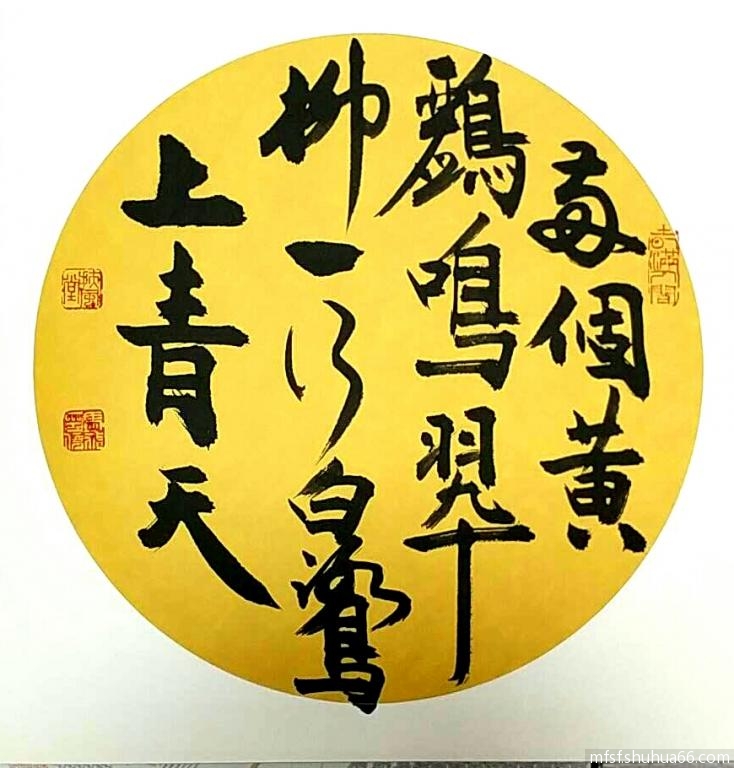 兩個黄
鸝鳴翠
柳一行白鷺
上青天
mfsfshuhua66.com